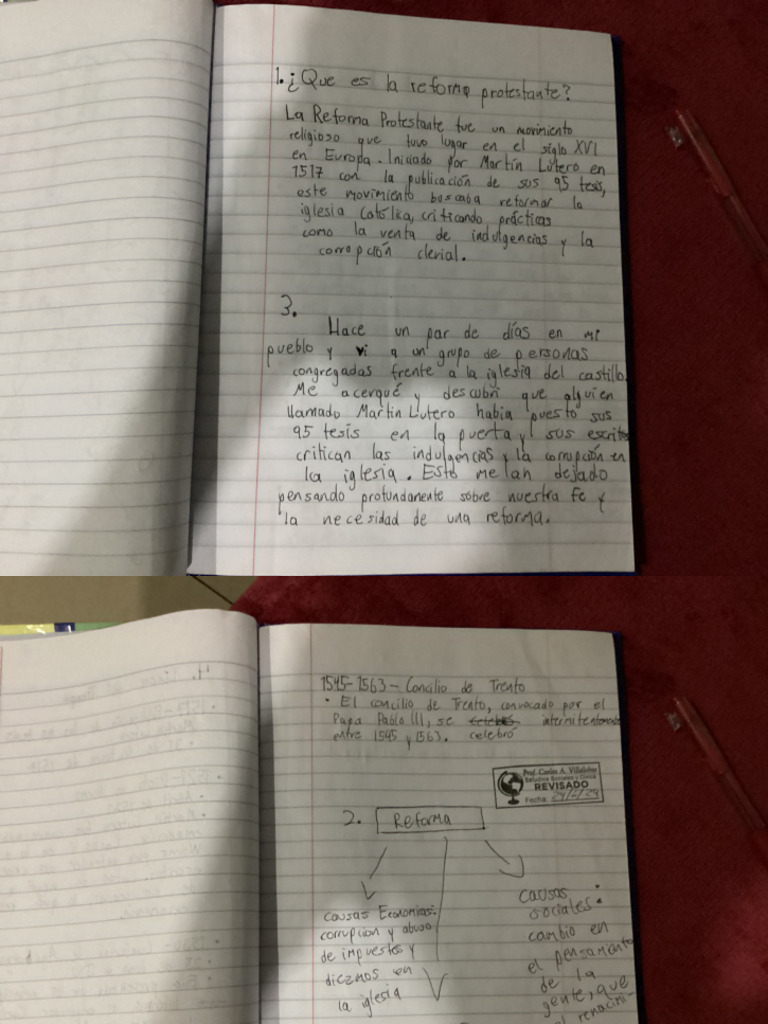 1. ¿Que es la reforma protestante?
La Reforma Protestante fue un movimiento
religioso que tuvo lugar en el siglo XVI
en Europa. Iniciado por Martín Lutero en
1517 con la publicación de sus 95 tesis,
este movimiento buscaba reformar la
iglesia Católica, criticando prácticas
como la venta de indulgencias y la
corropción clerial.
3.
Hace un par de días en mi
pueblo y vi a un grupo de personas
congregadas frente a la iglesia del castillo.
Me acerqué y descubrí que alguien
llamado Martin Lutero habia puesto sus
95 tesis en la puerta y sus escritos
critican las indulgencias y la corrupción en
la iglesia. Esto me lan dejado
pensando profundamente sobre nuestra fe y
la necesidad de una reforma.
1545-1563 - Concilio de Trento
• El concilio de Trento, convocado por el
Papa Pablo III, se intermitentemente
entre 1545 y 1563. celebró
Prof. Carlos A. Villalobos
Estudios Sociales y Cívica
REVISADO
Fecha:
2. Reforma
causas Economicas:
corrupcion y abuso
de impuestos y
diezmos en
la iglesia
causas
sociales:
cambio en
el pensamiento
de la
gente, que
el renacimi-